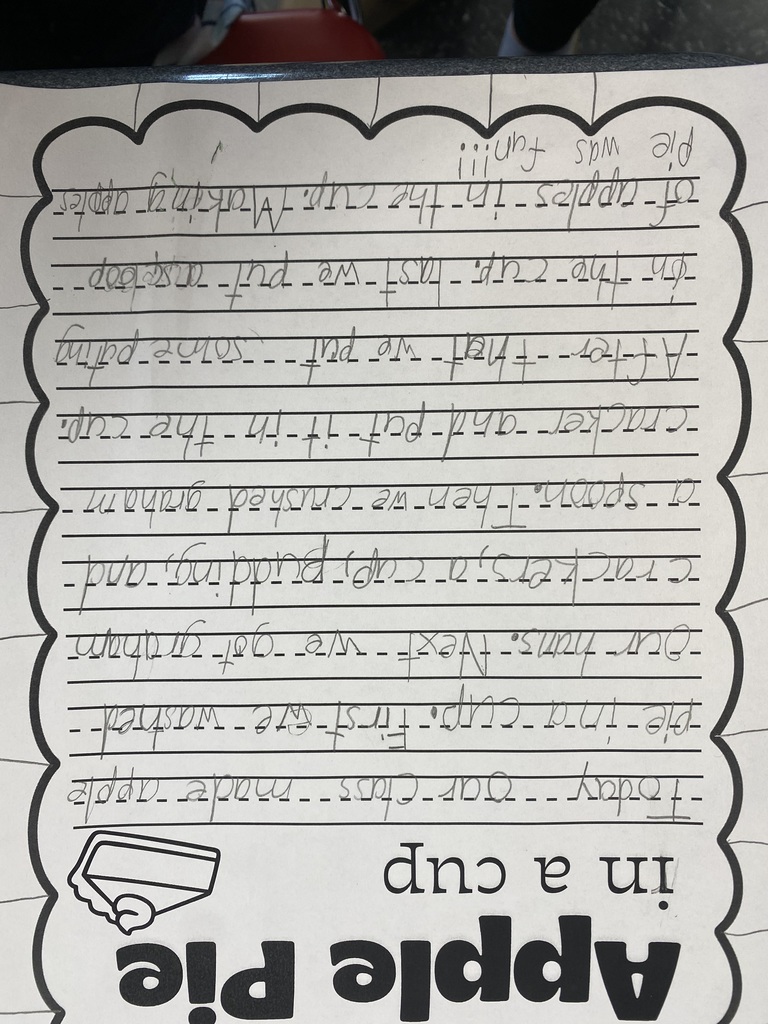 Apple Pie
in a cup
Today our class made apple
pie in a cup. First we washed
Our hans. Next we got graham
crackers, a cup, pudding, and
a spoon. Then we crushed graham
cracker and put it in the cup.
After that we put some pding
in the cup. last we put a scoop
of apples in the cup. Making apples
pie was fun!!!